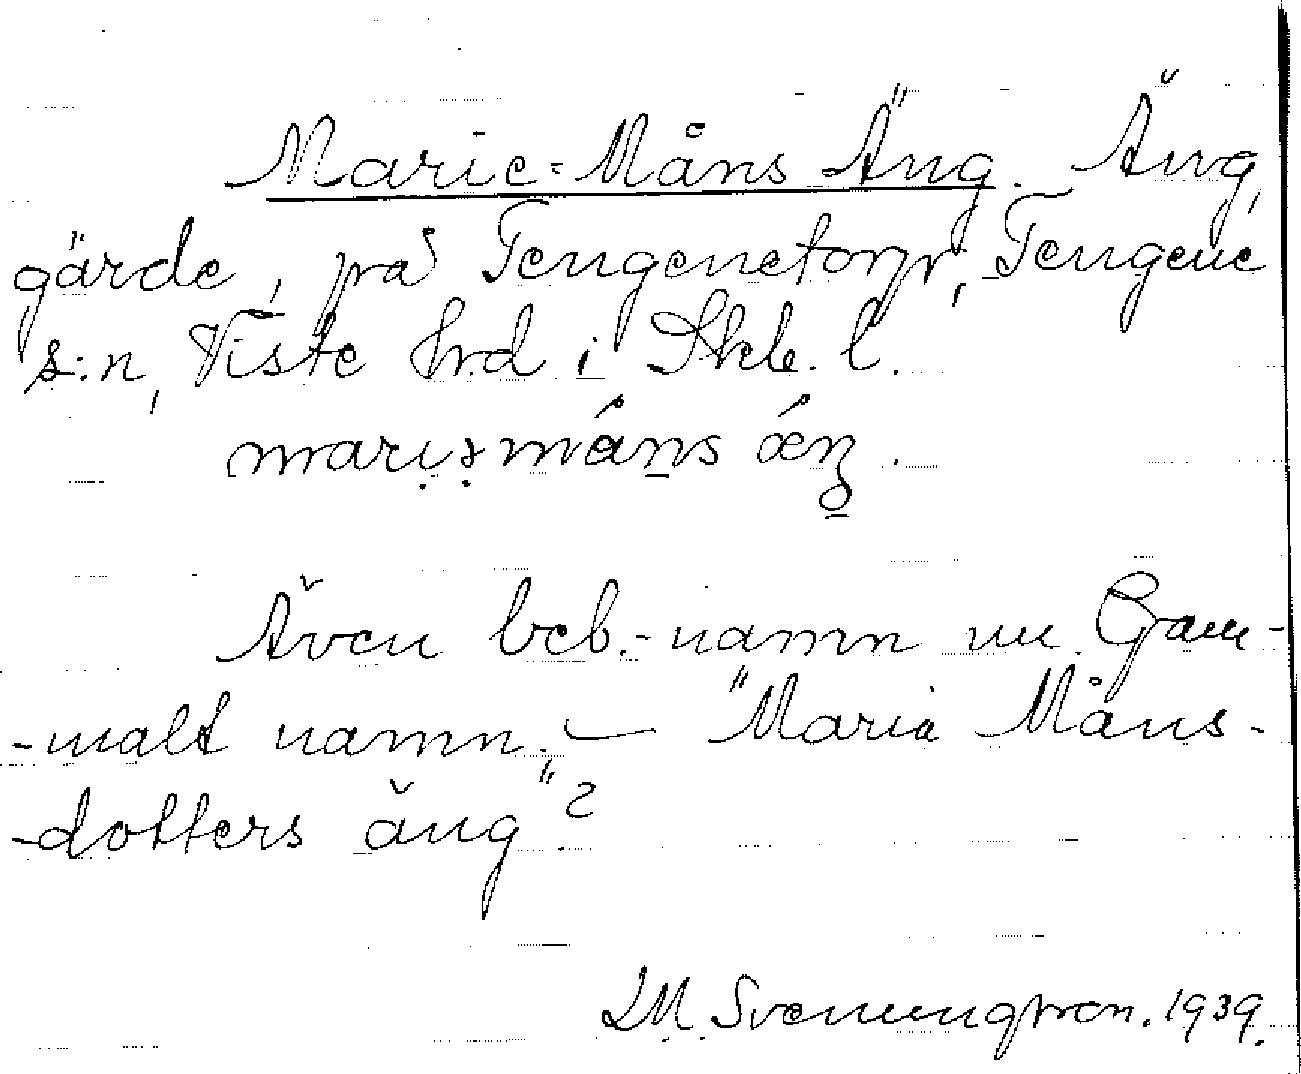 Marie-Måns Äng. Äng,
gärde, på Tengenetorp, Tengene
s:n, Viste hrd i Skb. l.
mariṣmáns ǽŋ.
Även beb.-namn nu. Gam-
-malt namn. — "Maria Måns-
-dotters äng"?
LM. Svenungsson. 1939.